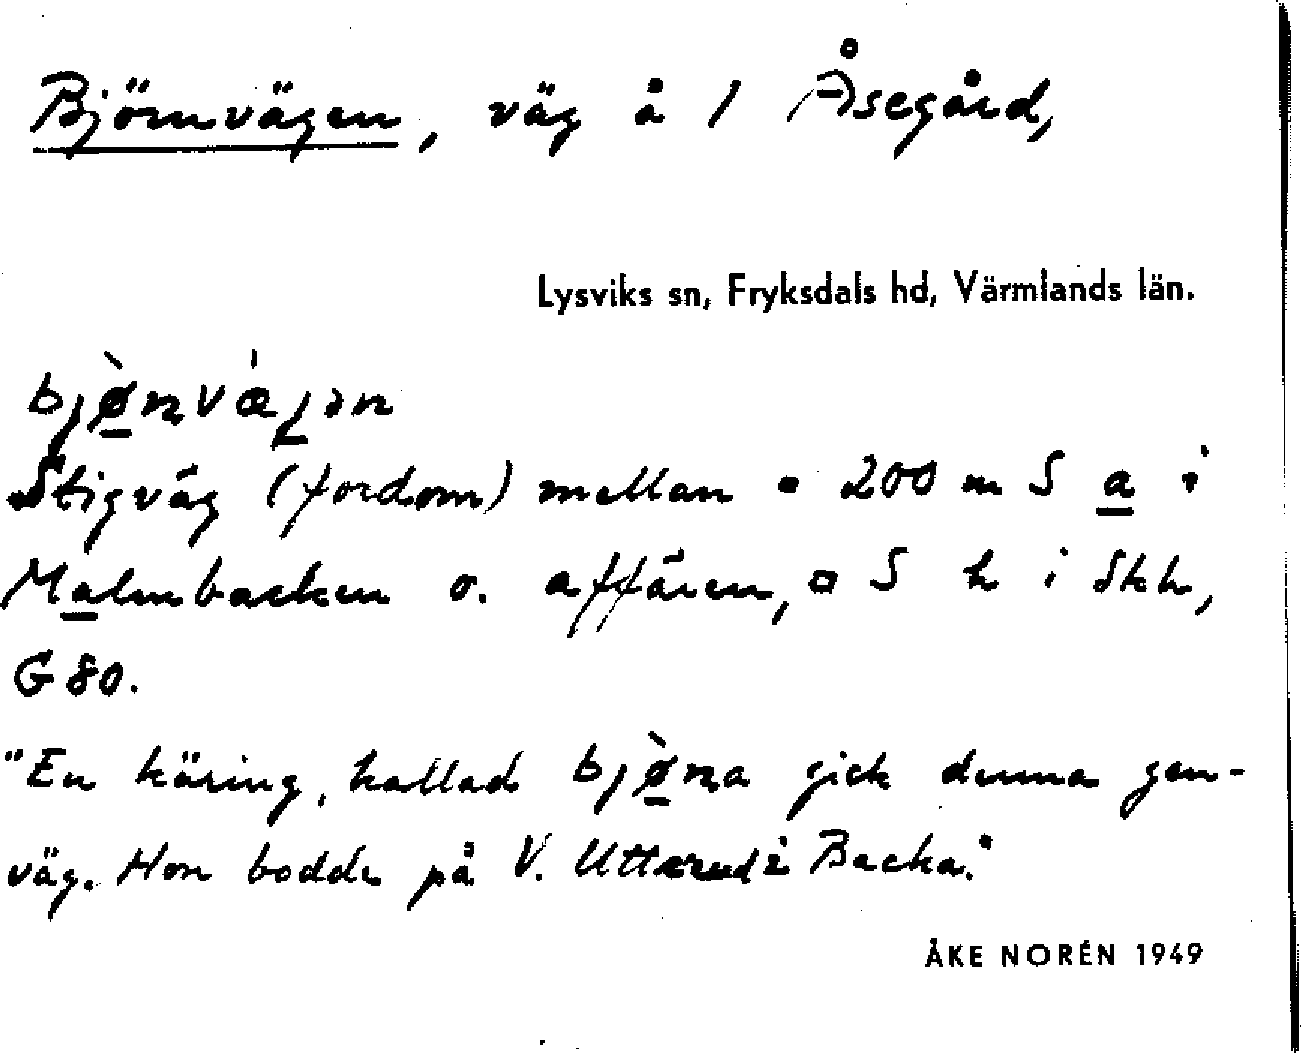 Björnvägen, väg å 1 Åsegård,
Lysviks sn, Fryksdals hd, Värmlands län.
bjø̀nvæ̀jən
Stigväg (fordom) mellan ▫ 200 m S a i
Malmbacken o. affären, ▫ S k i Skk,
G 80.
"En käring, kallad bjø̀na gick denna gen-
väg. Hon bodde på V. Utterud i Backa."
ÅKE NORÉN 1949